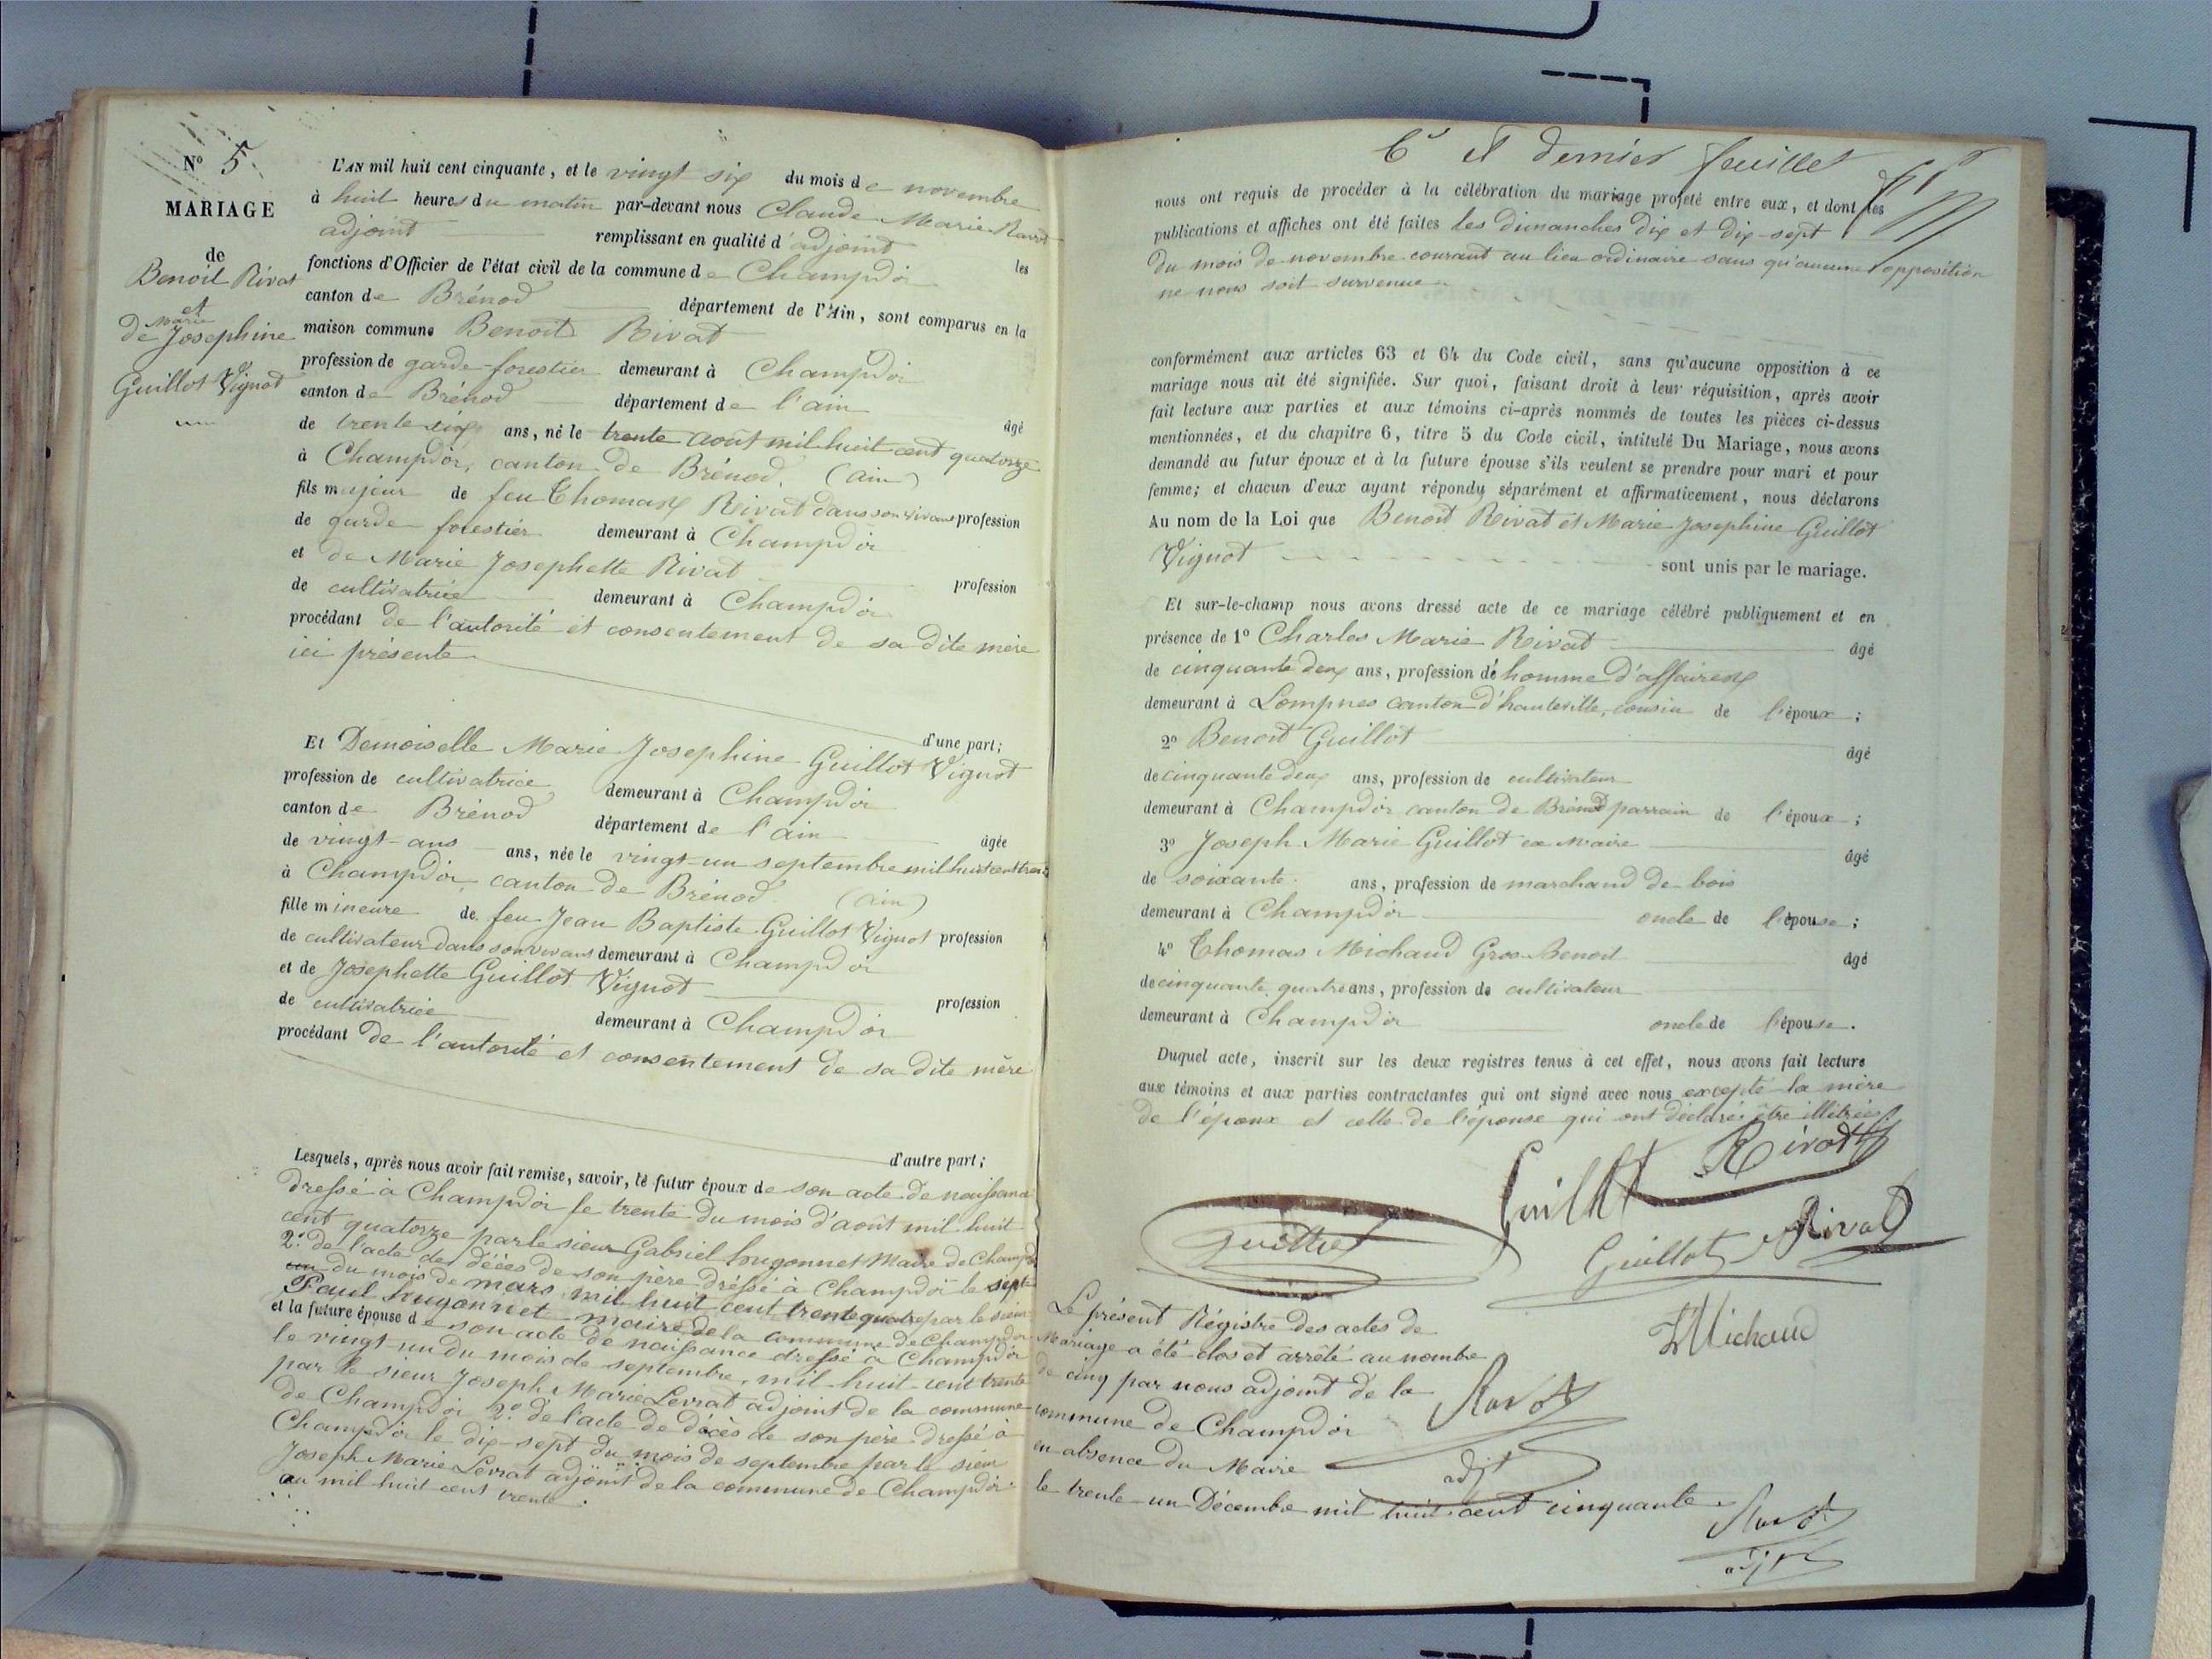 N° 5
MARIAGE
de
Benoit Rivat
et
Marie
de Josephine
Guillot Vignot
L'AN mil huit cent cinquante, et le vingt six du mois de novembre
à huit heures du matin par-devant nous Claude Marie Ravot
adjoint remplissant en qualité d'adjoint les
fonctions d'Officier de l'état civil de la commune de Champdor
canton de Brénod département de l'Ain, sont comparus en la
maison commune Benoit Rivat
profession de garde-forestier demeurant à Champdor
canton de Brénod département de l'ain âgé
de trente six ans, né le trente août mil huit cent quatorze
à Champdor, canton de Brénod. (Ain)
fils majeur de feu Thomas Rivat dans son vivant profession
de garde forestier demeurant à Champdor
et de Marie Josephette Rivat profession
de cultivatrice demeurant à Champdor
procédant de l'autorité et consentement de sa dite mère
ici présente
d'une part;
Et Demoiselle Marie Josephine Guillot Vignot
profession de cultivatrice demeurant à Champdor
canton de Brénod département de l'ain âgée
de vingt-ans ans, née le vingt-un septembre mil huit cent trente
à Champdor, canton de Brénod (Ain)
fille mineure de feu Jean Baptiste Guillot Vignot profession
de cultivateur dans son vivant demeurant à Champdor
et de Josephette Guillot Vignot profession
de cultivatrice demeurant à Champdor
procédant de l'autorité et consentement de sa dite mère
d'autre part;
Lesquels, après nous avoir fait remise, savoir, le futur époux de son acte de naissance
dressé à Champdor le trente du mois d'août mil huit
cent quatorze par le sieur Gabriel hugonnet Maire de Champdor
2° de l'acte de décès de son père dréssé à Champdor le sept
du mois de mars mil huit cent trente quatre par le sieur
Paul hugonnet maire de la commune de Champdor
et la future épouse de son acte de naissance dressé à Champdor
le vingt-un du mois de septembre, mil-huit-cent trente
par le sieur Joseph Marie Levrat adjoint de la commune
de Champdor 2° de l'acte de décès de son père dressé à
Champdor le dix-sept du mois de septembre par le sieur
Joseph Marie Levrat adjoint de la commune de Champdor
au mil huit cent trente.
6e et dernier feuillet
nous ont requis de procéder à la célébration du mariage projeté entre eux, et dont les
publications et affiches ont été faites les dimanches dix et dix-sept
du mois de novembre courant au lieu ordinaire sans qu'aucune opposition
ne nous soit survenue
conformément aux articles 63 et 64 du Code civil, sans qu'aucune opposition à ce
mariage nous ait été signifiée. Sur quoi, faisant droit à leur réquisition, après avoir
fait lecture aux parties et aux témoins ci-après nommés de toutes les pièces ci-dessus
mentionnées, et du chapitre 6, titre 5 du Code civil, intitulé Du Mariage, nous avons
demandé au futur époux et à la future épouse s'ils veulent se prendre pour mari et pour
femme; et chacun d'eux ayant répondu séparément et affirmativement, nous déclarons
Au nom de la Loi que Benoit Rivat et Marie Josephine Guillot
Vignot sont unis par le mariage.
Et sur-le-champ nous avons dressé acte de ce mariage célébré publiquement et en
présence de 1° Charles Marie Rivat âgé
de cinquante deux ans, profession d'homme d'affaires
demeurant à Lompnes canton d'hauteville, cousin de l'époux;
2° Benoit Guillot âgé
de cinquante deux ans, profession de cultivateur
demeurant à Champdor canton de Brénod parrain de l'époux;
3° Joseph Marie Guillot ex Maire âgé
de soixante ans, profession de marchand de bois
demeurant à Champdor oncle de l'épouse;
4° Thomas Michaud Gros-Benoit âgé
de cinquante quatre ans, profession de cultivateur
demeurant à Champdor oncle de l'épouse.
Duquel acte, inscrit sur les deux registres tenus à cet effet, nous avons fait lecture
aux témoins et aux parties contractantes qui ont signé avec nous excepté la mère
de l'époux et celle de l'épouse qui ont déclarées être illétrées
Guillot Rivat
Guillot Guillot Rivat
Michaud
Le présent Régistre des actes de
Mariage a été clos et arrêté au nombre
de cinq par nous adjoint de la
commune de Champdor
en absence du Maire
Ravot
adjt
le trente-un Décembre mil huit cent cinquante
Ravot
adjt